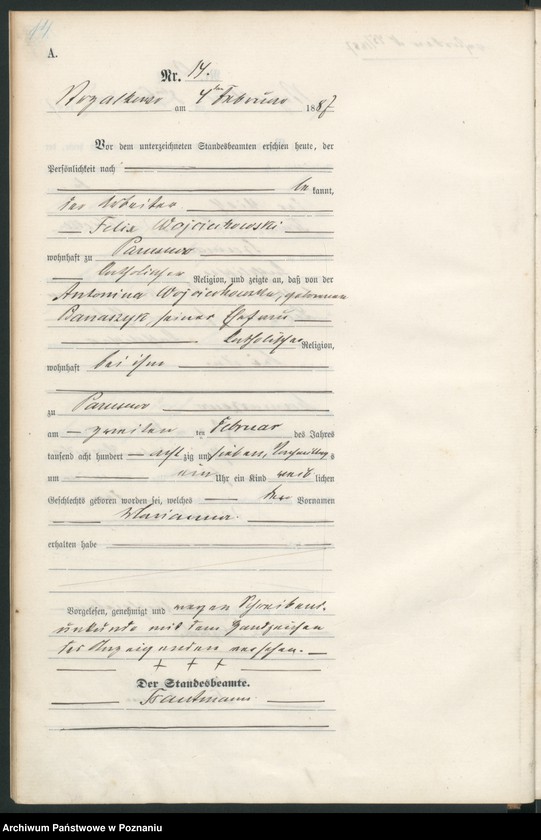 14
A.
Nr. 14.
am 4ten Februar 1887
Vor dem unterzeichneten Standesbeamten erschien heute, der
Persönlichkeit nach
be kannt,
der Arbeiter
Felix Wojciechowski
wohnhaft zu
katholischer Religion, und zeigte an, daß von der
Antonina Wojciechowska, geborenen
Banaszyk, seiner Ehefrau
katholischer Religion,
wohnhaft bei ihm
zu
am zweiten ten Februar des Jahres
tausend acht hundert acht zig und sieben, Vormittags
um ein Uhr ein Kind weib lichen
Geschlechts geboren worden sei, welches den Vornamen
Marianna
erhalten habe
Vorgelesen, genehmigt und wegen Schreibens-
unkunde mit dem Handzeichen
des Anzeigenden versehen.
+ + +
Der Standesbeamte.
Trautmann
Archiwum Państwowe w Poznaniu